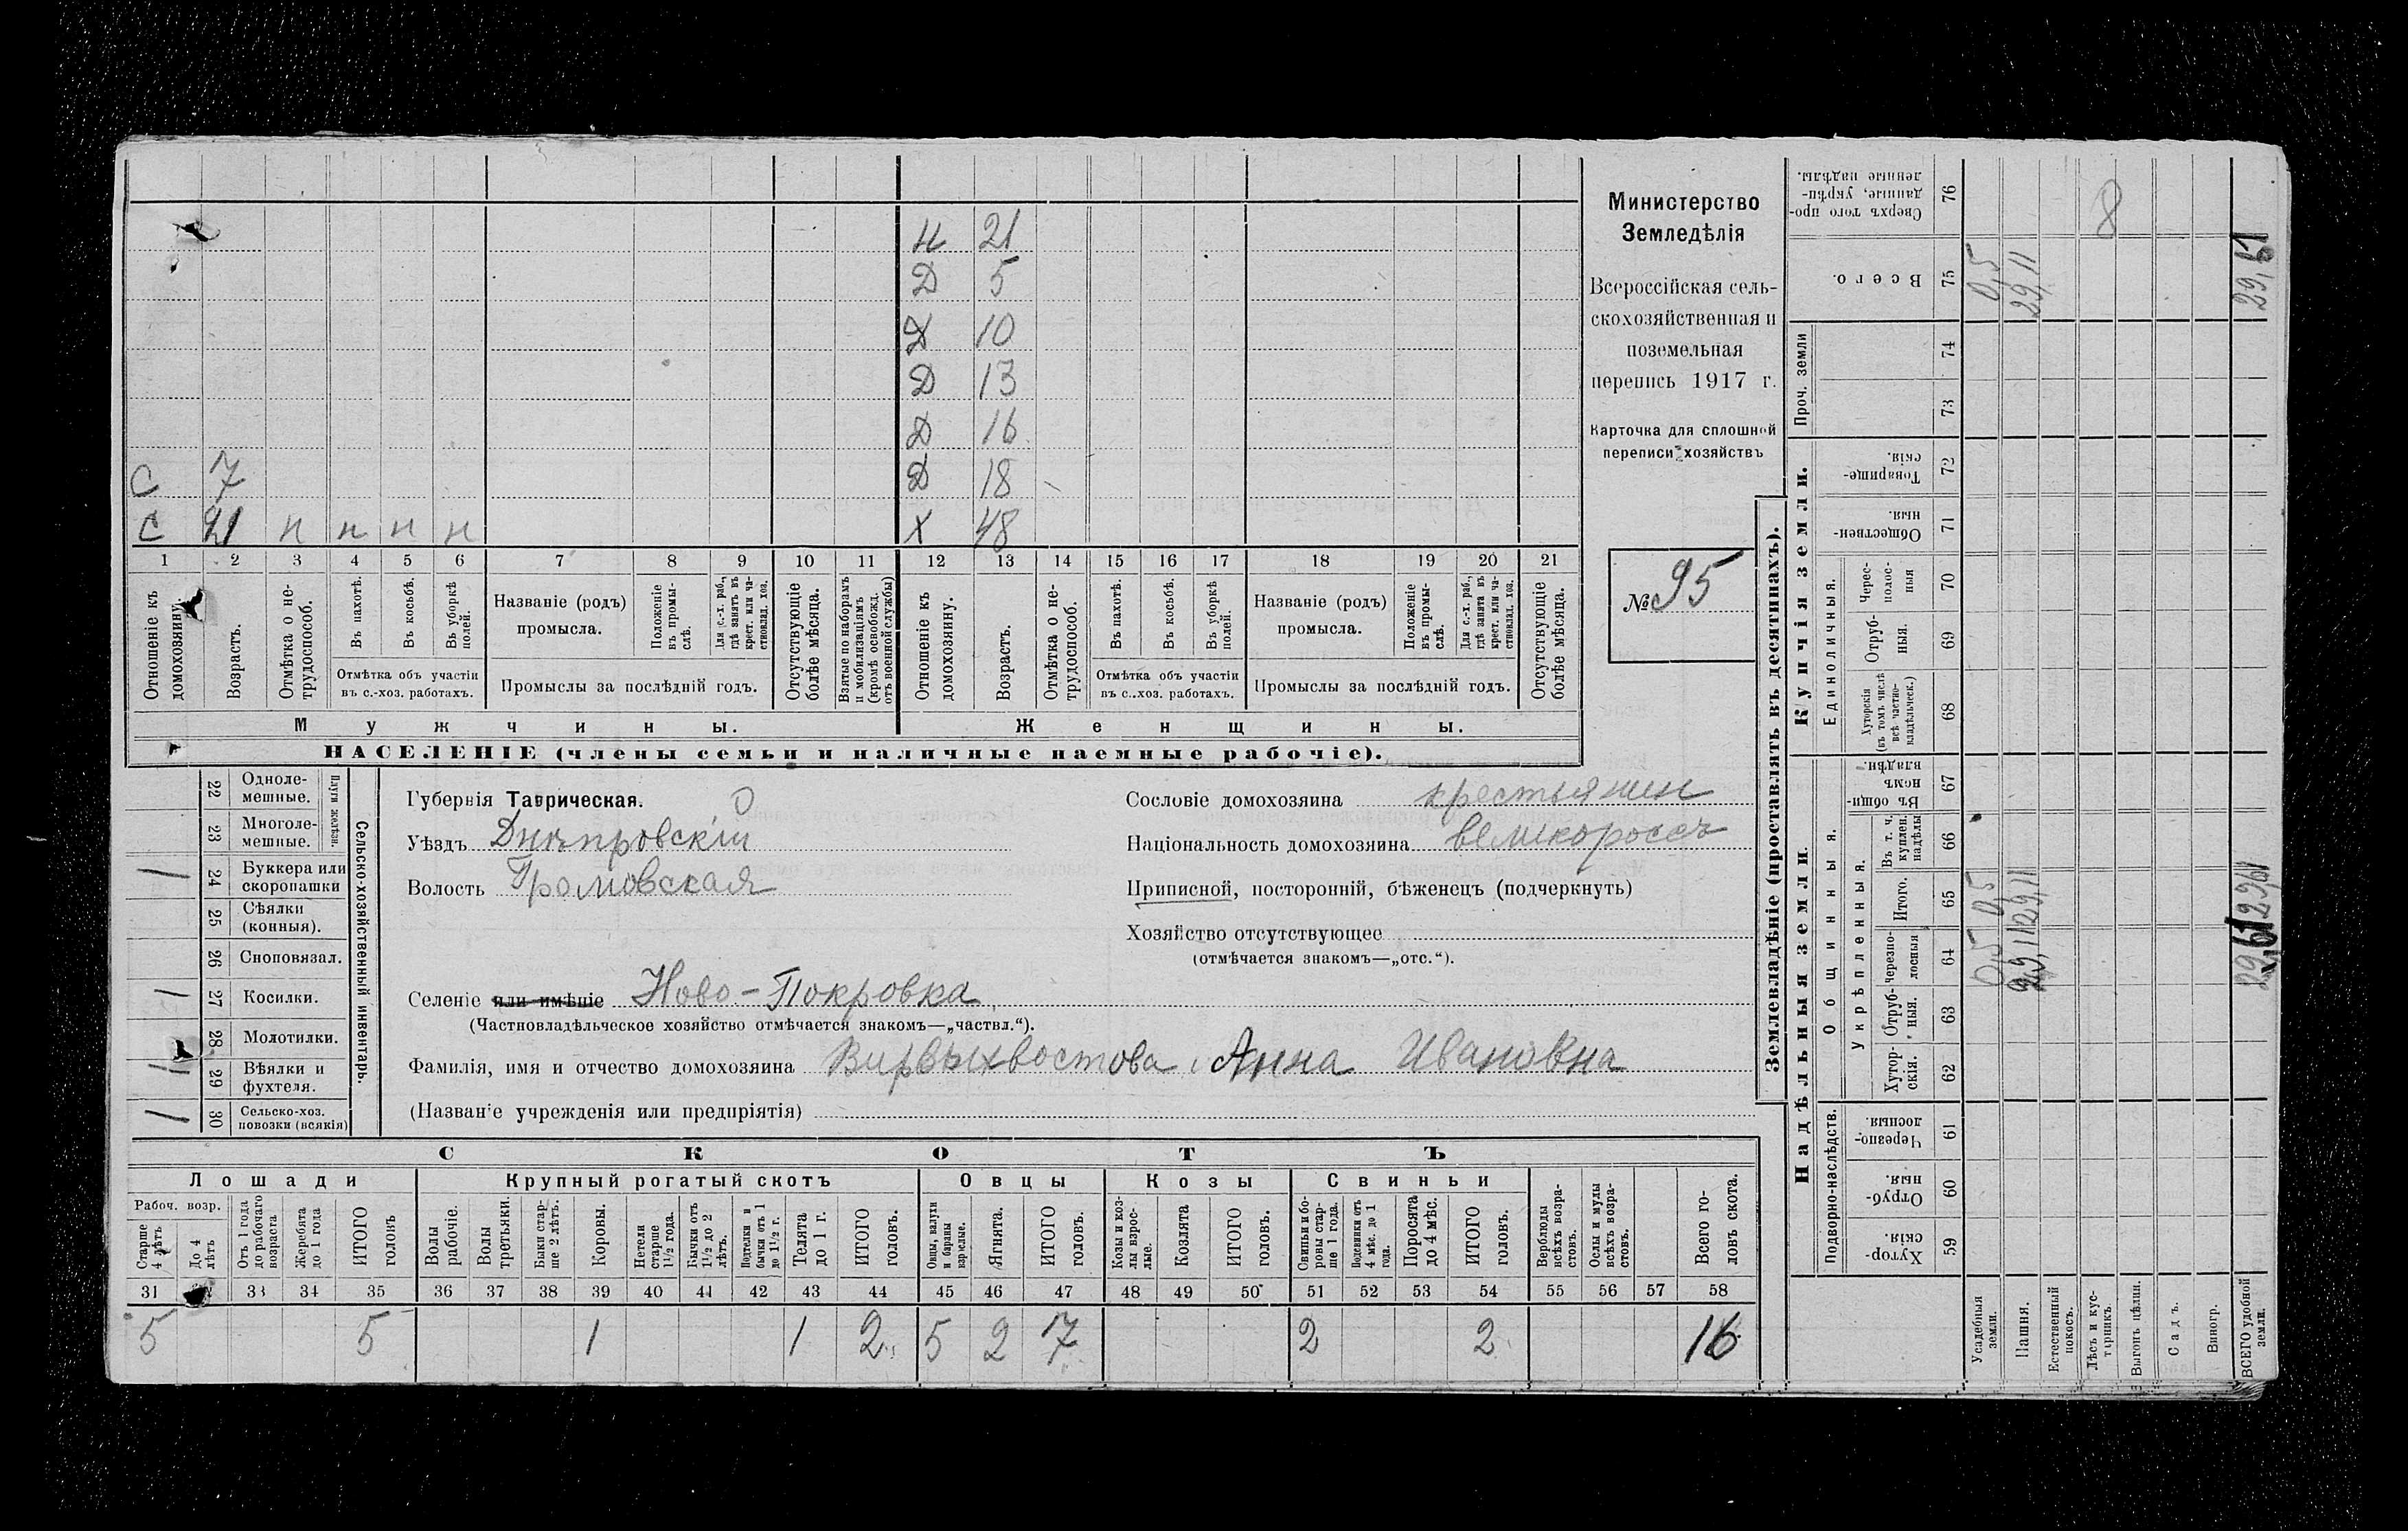 Н 21
Д 5
Д 10
Д 13
Д 16
С 7 Д 18
С 21 н н н н Х 48
1 2 3 4 5 6 7 8 9 10 11 12 13 14 15 16 17 18 19 20 21
Отношеніе къ домохозяину.
Возрастъ.
Отмѣтка о не-трудоспособ.
Въ пахотѣ.
Въ косьбѣ.
Въ уборкѣ полей.
Отмѣтка объ участіи въ с.-хоз. работахъ.
Названіе (родъ) промысла.
Положеніе въ промы-слѣ.
Для с.-х. раб., гдѣ занятъ въ крест. или ча-стновлад. хоз.
Промыслы за послѣдній годъ.
Отсутствующіе болѣе мѣсяца.
Взятые по наборамъ и мобилизаціямъ (кромѣ освобожд. отъ военной службы)
Отношеніе къ домохозяину.
Возрастъ.
Отмѣтка о не-трудоспособ.
Въ пахотѣ.
Въ косьбѣ.
Въ уборкѣ полей.
Отмѣтка объ участіи въ с..хоз. работахъ.
Названіе (родъ) промысла.
Положеніе въ промы-слѣ.
Для с.-х. раб., гдѣ занята въ крест. или ча-стновлад. хоз.
Промыслы за послѣдній годъ.
Отсутствующіе болѣе мѣсяца.
Мужчины. Женщины.
НАСЕЛЕНІЕ (члены семьи и наличные наемные рабочіе).
Министерство
Земледѣлія
Всероссійская сель-
скохозяйственная и
поземельная
перепись 1917 г.
Карточка для сплошной
переписи хозяйствъ
№ 95
22 Одноле-мешные.
23 Многоле-мешные.
Плуги желѣзн.
1 24 Буккера или скоропашки
25 Сѣялки (конныя).
26 Сноповязал.
1 27 Косилки.
28 Молотилки.
1 29 Вѣялки и фухтеля.
1 30 Сельско-хоз. повозки (всякія)
Сельско-хозяйственный инвентарь.
Губернія Таврическая.
Уѣздъ Днѣпровскій
Волость Громовская
Селеніе или имѣніе Ново-Покровка
(Частновладѣльческое хозяйство отмѣчается знакомъ—„частвл.“).
Фамилія, имя и отчество домохозяина Вирвыхвостова Анна Ивановна
(Названіе учрежденія или предпріятія)
Сословіе домохозяина крестьянин
Національность домохозяина великороссъ
Приписной, посторонній, бѣженецъ (подчеркнуть)
Хозяйство отсутствующее
(отмѣчается знакомъ—„отс.“).
СКОТЪ
Лошади Крупный рогатый скотъ Овцы Козы Свиньи
Рабоч. возр.
Старше 4 лѣтъ
До 4 лѣтъ
Отъ 1 года до рабочаго возраста
Жеребята до 1 года
ИТОГО головъ
Волы рабочіе.
Волы третьяки.
Быки стар-ше 2 лѣтъ.
Коровы.
Нетели старше 1½ года.
Бычки отъ 1½ до 2 лѣтъ.
Подтелки и бычки отъ 1 до 1½ г.
Телята до 1 г.
ИТОГО головъ.
Овцы, валухи и бараны взрослые.
Ягнята.
ИТОГО головъ.
Козы и коз-лы взрос-лые.
Козлята
ИТОГО головъ.
Свиньи и бо-ровы стар-ше 1 года.
Подсвинки отъ 4 мѣс. до 1 года.
Поросята до 4 мѣс.
ИТОГО головъ.
Верблюды всѣхъ возра-стовъ.
Ослы и мулы всѣхъ возра-стовъ.
Всего го-ловъ скота.
31 33 34 35 36 37 38 39 40 41 42 43 44 45 46 47 48 49 50 51 52 53 54 55 56 57 58
5 5 1 1 2 5 2 7 2 2 16
Землевладѣніе (проставлять въ десятинахъ).
Купчія земли.
Надѣльныя земли.
Сверхъ того про-данные, укрѣп-ленные надѣлы. 76 8
Всего. 75 0,5 29,11
Проч. земли 74 73
Товарище-скія. 72
Обществен-ныя. 71
Единоличныя.
Черес-полос-ныя 70
Отруб-ныя. 69
Хуторскія (въ томъ числѣ всѣ частно-владѣльческ.) 68
Общинныя.
Въ общин-номъ владѣн. 67
Укрѣпленныя.
Въ т. ч. куплен. надѣлы 66
Итого. 65 0,5 29,11 29,61
Черезпо-лосныя 64 0,5 29,11
Отруб-ныя. 63
Хутор-скія. 62
Подворно-наслѣдств.
Черезпо-лосныя. 61
Отруб-ныя. 60
Хутор-скія. 59
Усадебныя земли.
Пашня.
Естественный покосъ.
Лѣсъ и кус-тарникъ.
Выгонъ цѣлин.
Садъ.
Виногр.
ВСЕГО удобной земли.